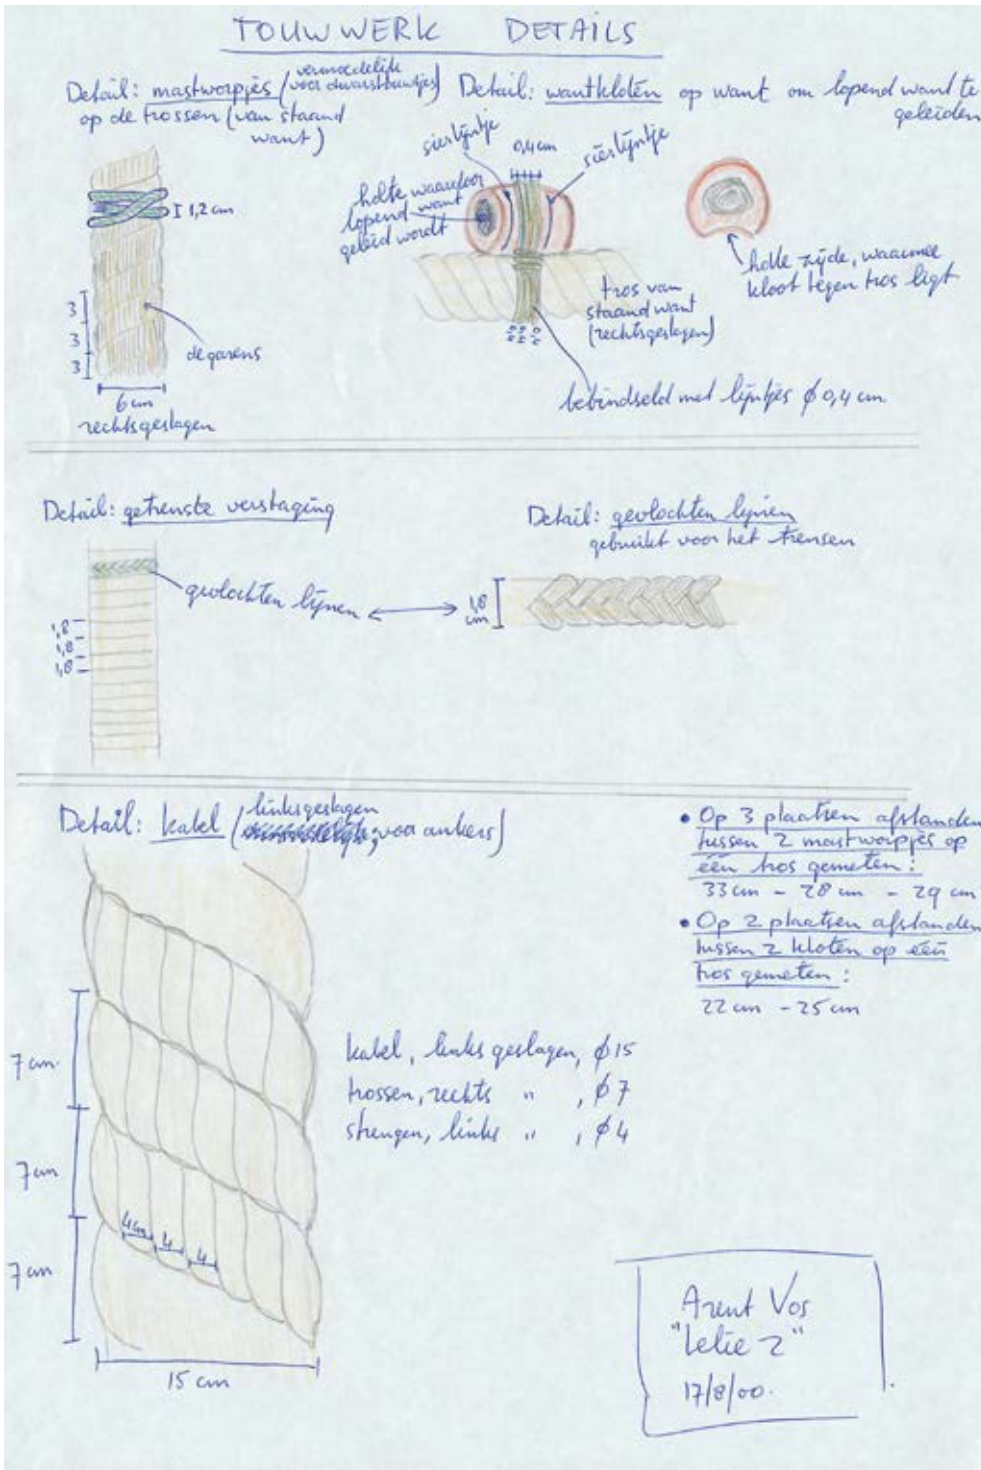 TOUWWERK DETAILS
Detail: mastworpjes (vermoedelijk
voor dwarstouwtjes)
op de trossen (van staand
want)
I 1,2 cm
3
3
3
de garens
6 cm
rechtsgeslagen
Detail: wantkloten op want om lopend want te
geleiden
sierlijntje
0,4 cm
sierlijntje
holte waardoor
lopend want
geleid wordt
tros van
staand want
(rechtsgeslagen)
holle zijde, waarmee
kloot tegen tros ligt
bebindseld met lijntjes ø 0,4 cm
Detail: getrenste verstaging
gevlochten lijnen
1,8
1,8
1,8
Detail: gevlochten lijnen
gebruikt voor het trensen
1,8
cm
Detail: kabel (linksgeslagen
, voor ankers)
7 cm
7 cm
7 cm
4 cm
4
4
15 cm
kabel, links geslagen, ø 15
trossen, rechts " , ø 7
strengen, links " , ø 4
• Op 3 plaatsen afstanden
tussen 2 mastworpjes op
één tros gemeten:
33 cm - 28 cm - 29 cm
• Op 2 plaatsen afstanden
tussen 2 kloten op één
tros gemeten:
22 cm - 25 cm
Arent Vos
"Lelie 2"
17/8/00.